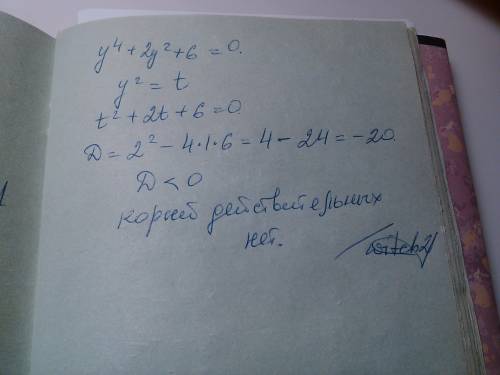 y⁴ + 2y² + 6 = 0.
y² = t
t² + 2t + 6 = 0.
D = 2² - 4·1·6 = 4 - 24 = -20.
D < 0
корней действительных
нет.